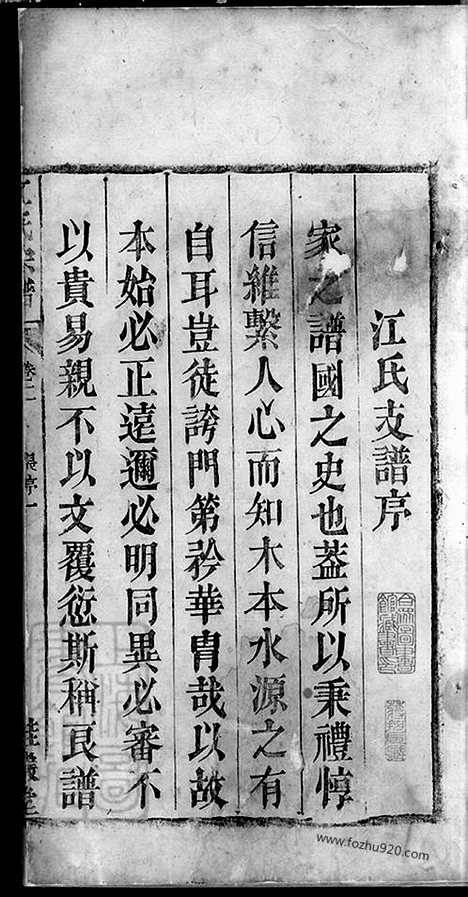 江氏支譜序
家之譜國之史也葢所以秉禮惇
信維繫人心而知木本水源之有
自耳豈徒誇門第矜華胄哉以故
本始必正遠邇必明同異必審不
以貴易親不以文覆愆斯稱良譜
卷一
www.fozhu920.com